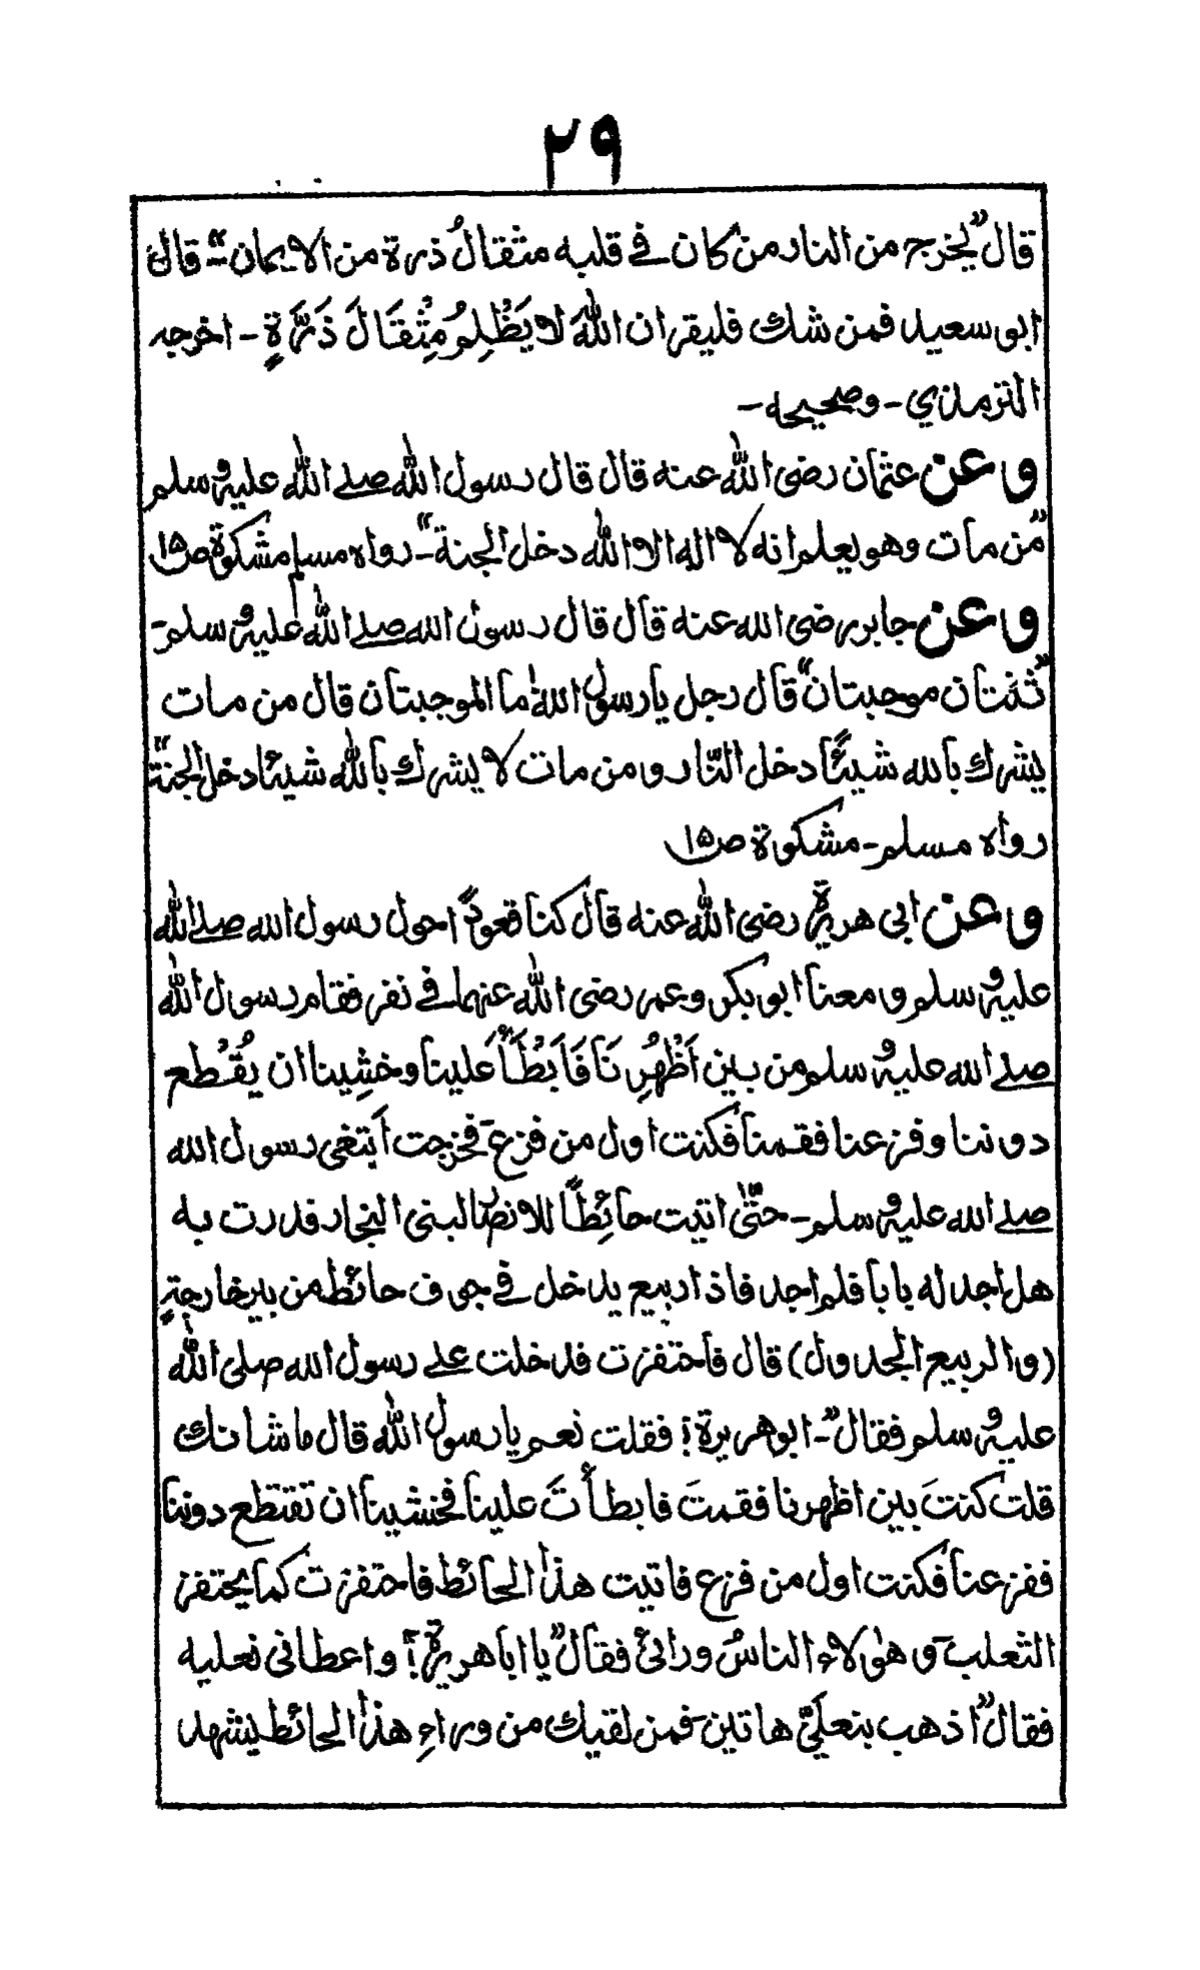 ٢٩
قال "يخرج من النار من كان في قلبه مثقالُ ذرة من الايمان"- قال
ابو سعيد فمن شك فليقر ان اللهَ لا يَظْلِمُ مِثْقَالَ ذَرَّةٍ - اخرجه
الترمذي - وصححيحه -
وعن عثمان رضى الله عنه قال قال رسول الله صلے الله عليه وسلم
"مَن مات وهو يعلم انه لا اله الا الله دخل الجنة"- رواه مسلم مشكوة ص١٥
وعن جابر رضى الله عنه قال قال رسول الله صلے الله عليه وسلم-
"ثنتان موجبتان" قال رجل يا رسول الله ما الموجبتان قال من مات
يشرك بالله شيئًا دخل النّار و من مات لا يشرك بالله شيئا دخل الجنة"
رواه مسلم - مشكوة ص١٥
وعن ابى هريرة رضى الله عنه قال كنا قعودًا حول رسول الله صلے الله
عليه وسلم و معنا ابو بكر وعمر رضى الله عنهما فے نفر فقام رسول الله
صلے الله عليه وسلم من بين اَظْهُرِنَا فَاَبْطَأَ عَلينا وخشِينا ان يُقْطع
دوننا وفزعنا فقمنا فكنت اول من فزع- فخرجت اَبتغى رسول الله
صلے الله عليه وسلم - حتّٰى اتيت حائِطًا للانصار لبنى النجار فدرت به
هل اجد له بابا فلم اجد فاذا ربيع يدخل فے جوف حائط من بير خارجةٍ
(والربيع الجدول) قال فاحتفزت فدخلت علے رسول الله صلى الله
عليه وسلم فقال"- ابو هريرة؟ فقلت نعم يا رسول الله قال ما شانك
قلت كنتَ بين اظهرنا فقمتَ فابطأتَ علينا فخشينا ان تقتطع دوننا
ففزعنا فكنت اول من فزع فاتيت هذا الحائط فاحتفزت كما يحتفز
الثعلب- و هٰولاء الناسُ ورائى فقال" يا ابا هريرة؟ واعطانى نعليه
فقال" اذهب بنعليّ هاتين- فمن لقيك من وراءِ هذا الحائط يشهد